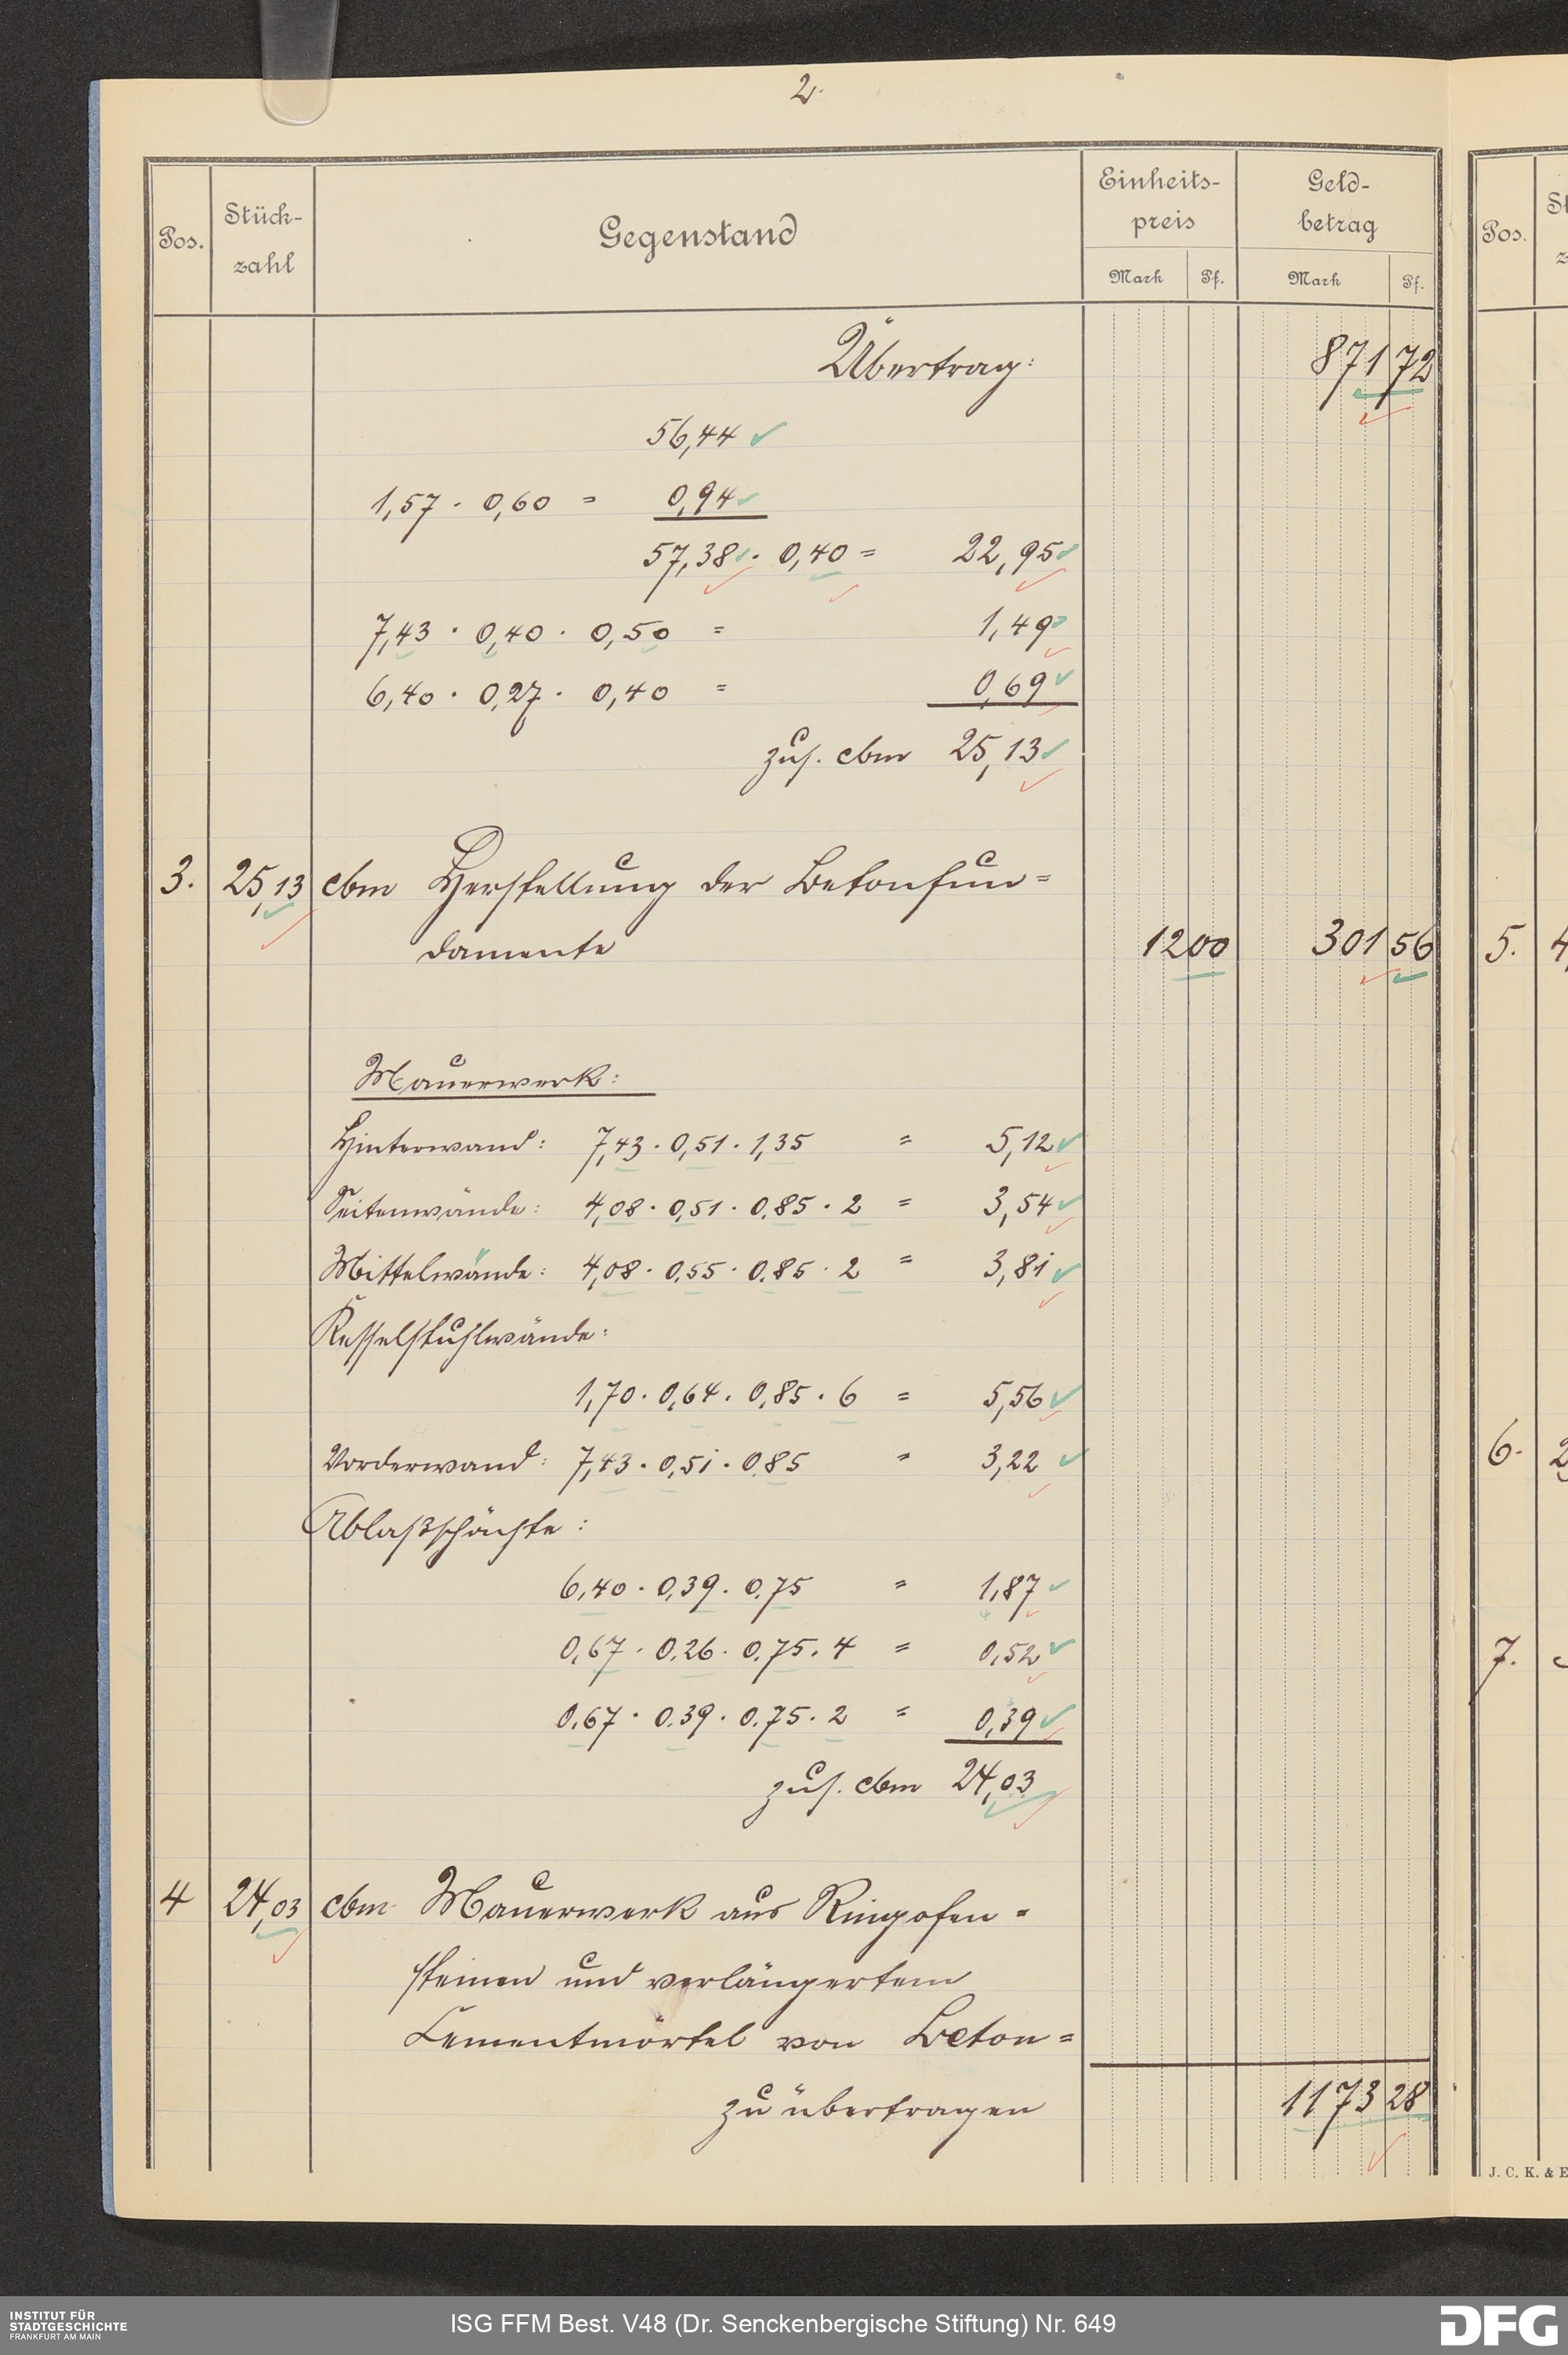 2.
Pos.
Stück-
zahl
Gegenstand
Einheits-
preis
Mark Pf.
Geld-
betrag
Mark Pf.
Pos.
Übertrag: 871 72
56,44
1,57 · 0,60 = 0,94
57,38 · 0,40 = 22,95
7,43 · 0,40 · 0,50 = 1,49
6,40 · 0,27 · 0,40 = 0,69
zus. cbm 25,13
3. 25,13 cbm Herstellung der Betonfun=
damente 12 00 301 56
5.
Mauerwerk:
Hinterwand: 7,43 · 0,51 · 1,35 = 5,12
Seitenwände: 4,08 · 0,51 · 0,85 · 2 = 3,54
Mittelwände: 4,08 · 0,55 · 0,85 · 2 = 3,81
Kesselstuhlwände:
1,70 · 0,64 · 0,85 · 6 = 5,56
Vorderwand: 7,43 · 0,51 · 0,85 = 3,22
6.
Ablaßschächte:
6,40 · 0,39 · 0,75 = 1,87
0,67 · 0,26 · 0,75 · 4 = 0,52
7.
0,67 · 0,39 · 0,75 · 2 = 0,39
zus. cbm 24,03
4 24,03 cbm Mauerwerk aus Ringofen=
steinen und verlängertem
Cementmörtel von Beton=
zu übertragen 1173 28
J. C. K. & E
INSTITUT FÜR
STADTGESCHICHTE
FRANKFURT AM MAIN
ISG FFM Best. V48 (Dr. Senckenbergische Stiftung) Nr. 649
DFG